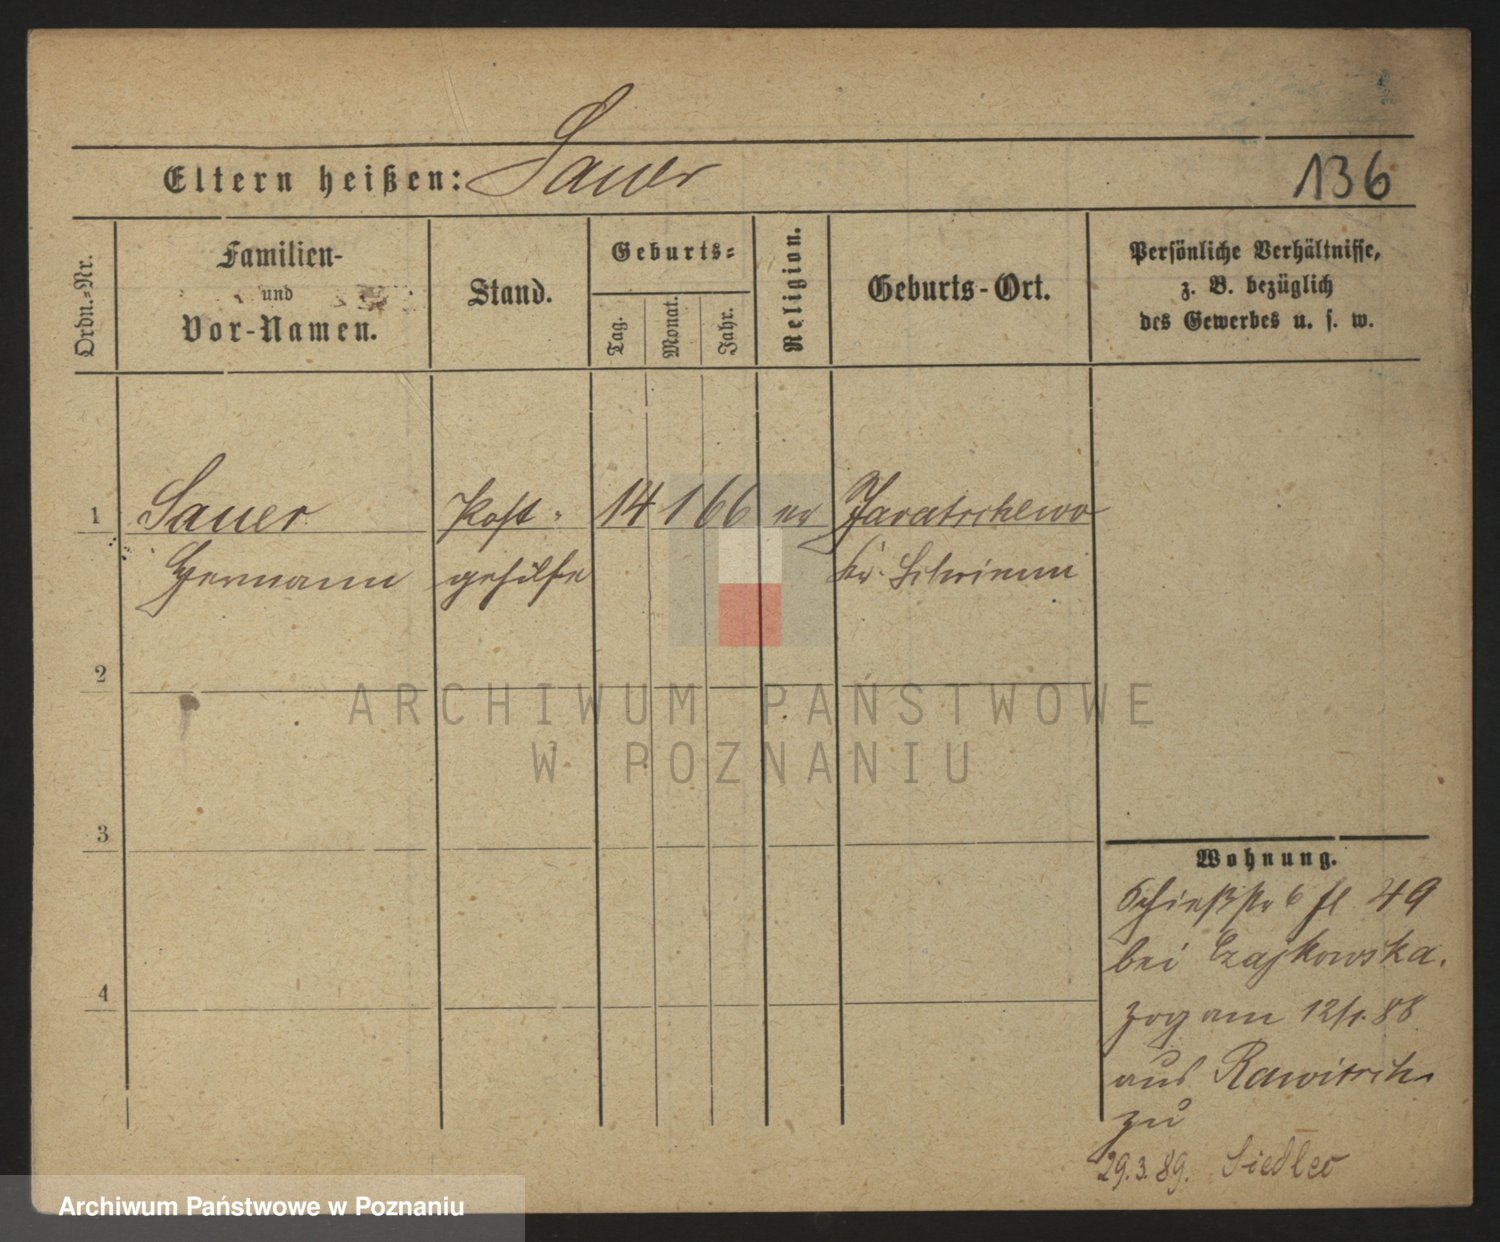 Eltern heißen: Sauer
136
Ordn.-Nr.
Familien-
und
Vor-Namen.
Stand.
Geburts-
Tag.
Monat.
Jahr.
Religion.
Geburts-Ort.
Persönliche Verhältnisse,
z. B. bezüglich
des Gewerbes u. s. w.
1 Sauer Post- 14 1 66 ev Jaratschewo
Hermann gehilfe Kr. Schrimm
2
3
4
Wohnung.
Schießstr 6 fl 49
bei Czajkowska.
zog am 12/1. 88
aus Rawitsch
zu
29.3.89. Siedlec
ARCHIWUM PAŃSTWOWE
W POZNANIU
Archiwum Państwowe w Poznaniu